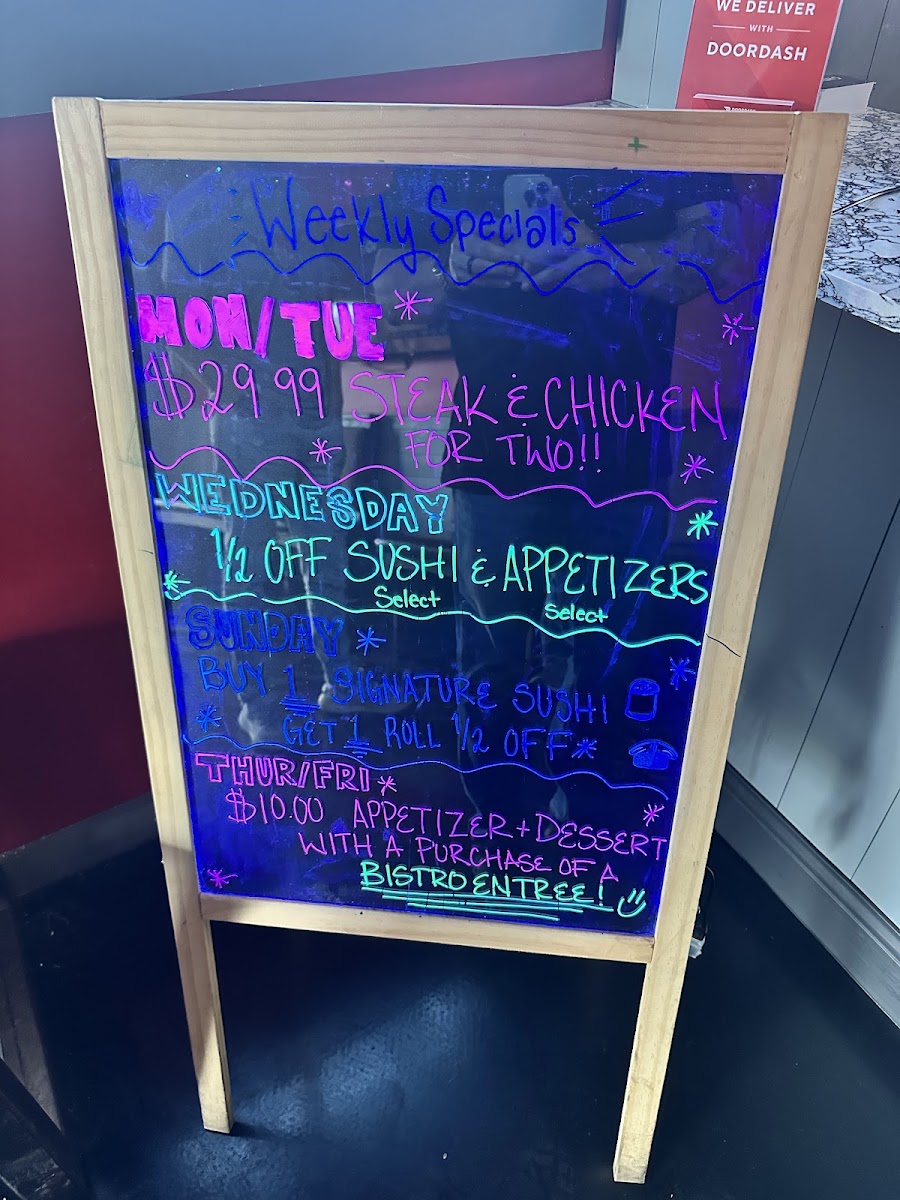 WE DELIVER
WITH
DOORDASH
Weekly Specials
MON/TUE
$29 99 STEAK & CHICKEN
FOR TWO!!
WEDNESDAY
1/2 OFF SUSHI & APPETIZERS
Select Select
SUNDAY
BUY 1 SIGNATURE SUSHI
GET 1 ROLL 1/2 OFF
THUR/FRI
$10.00 APPETIZER + DESSERT
WITH A PURCHASE OF A
BISTRO ENTREE!